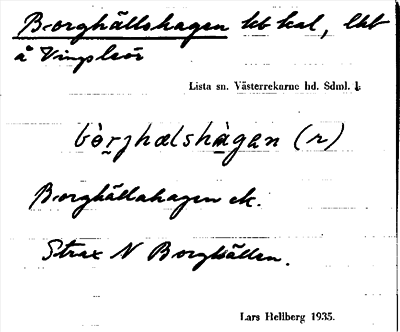 Borghällshagen ht kal, lht
å Vingsleör
Lista sn. Västerrekarne hd. Sdml. l.
bòrjhælshàgan (r)
Borghällahagen ek.
Strax N Borghällen.
Lars Hellberg 1935.